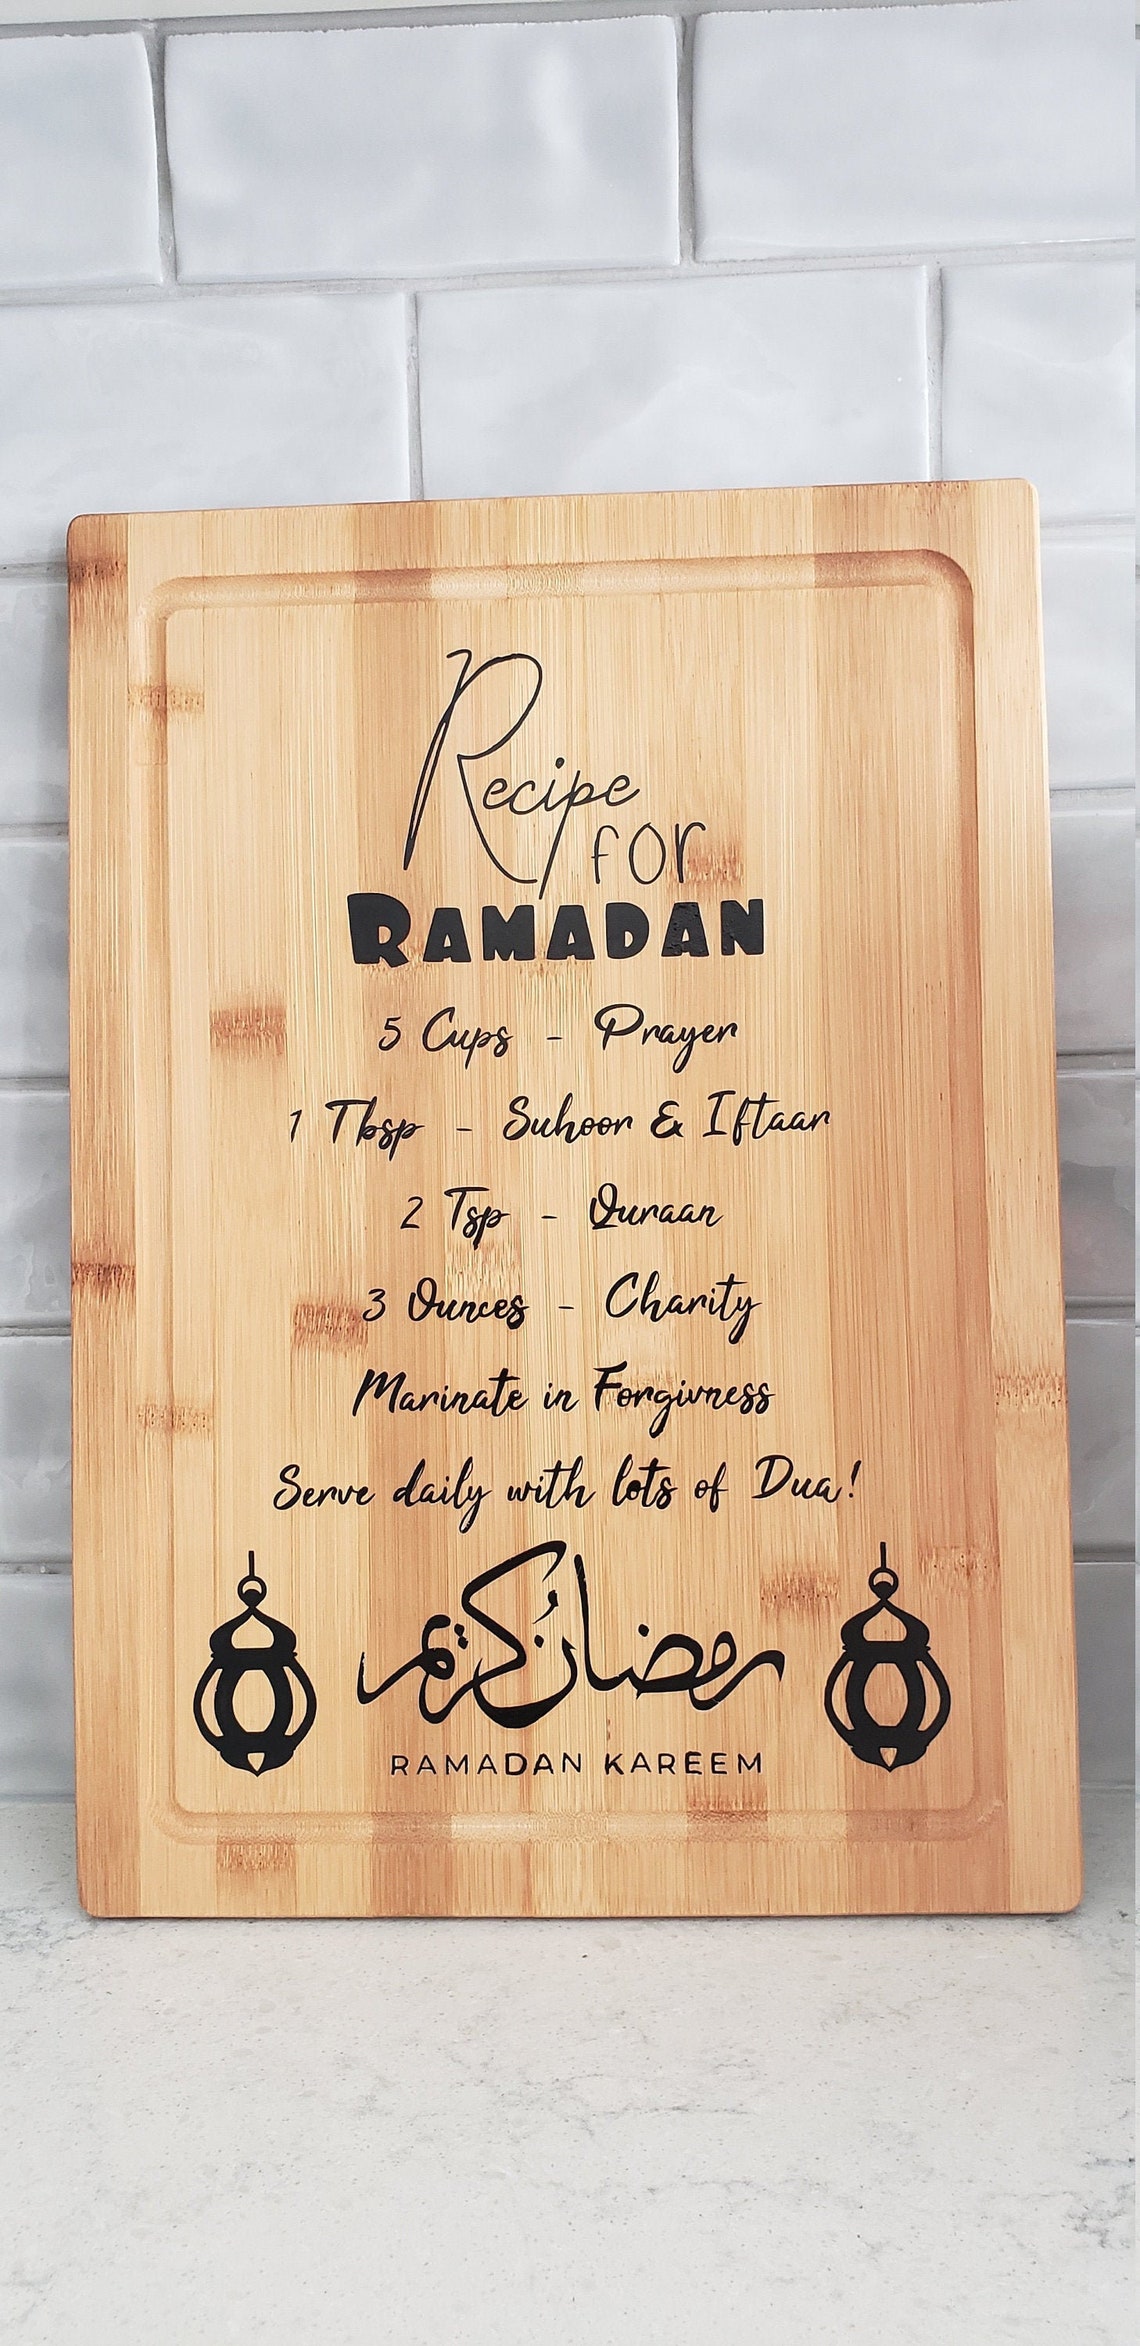 Recipe
for
RAMADAN
5 Cups - Prayer
1 Tbsp - Suhoor & Iftaar
2 Tsp - Quraan
3 Ounces - Charity
Marinate in Forgivness
Serve daily with lots of Dua!
رمضان كريم
RAMADAN KAREEM